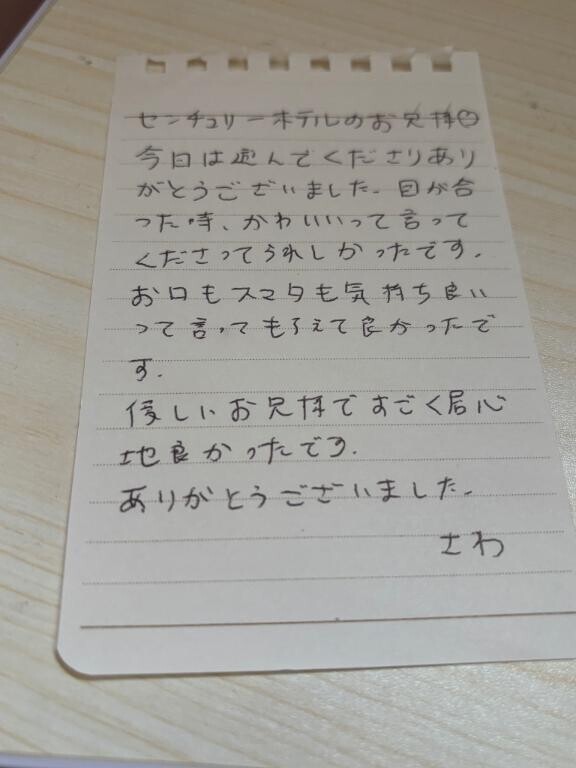 センチュリーホテルのお兄様☺
今日は遊んでくださりあり
がとうございました。目が合
った時、かわいいって言って
くださってうれしかったです。
お口もスマタも気持ち良い
って言ってもらえて良かったで
す。
優しいお兄様ですごく居心
地良かったです。
ありがとうございました。
さわ